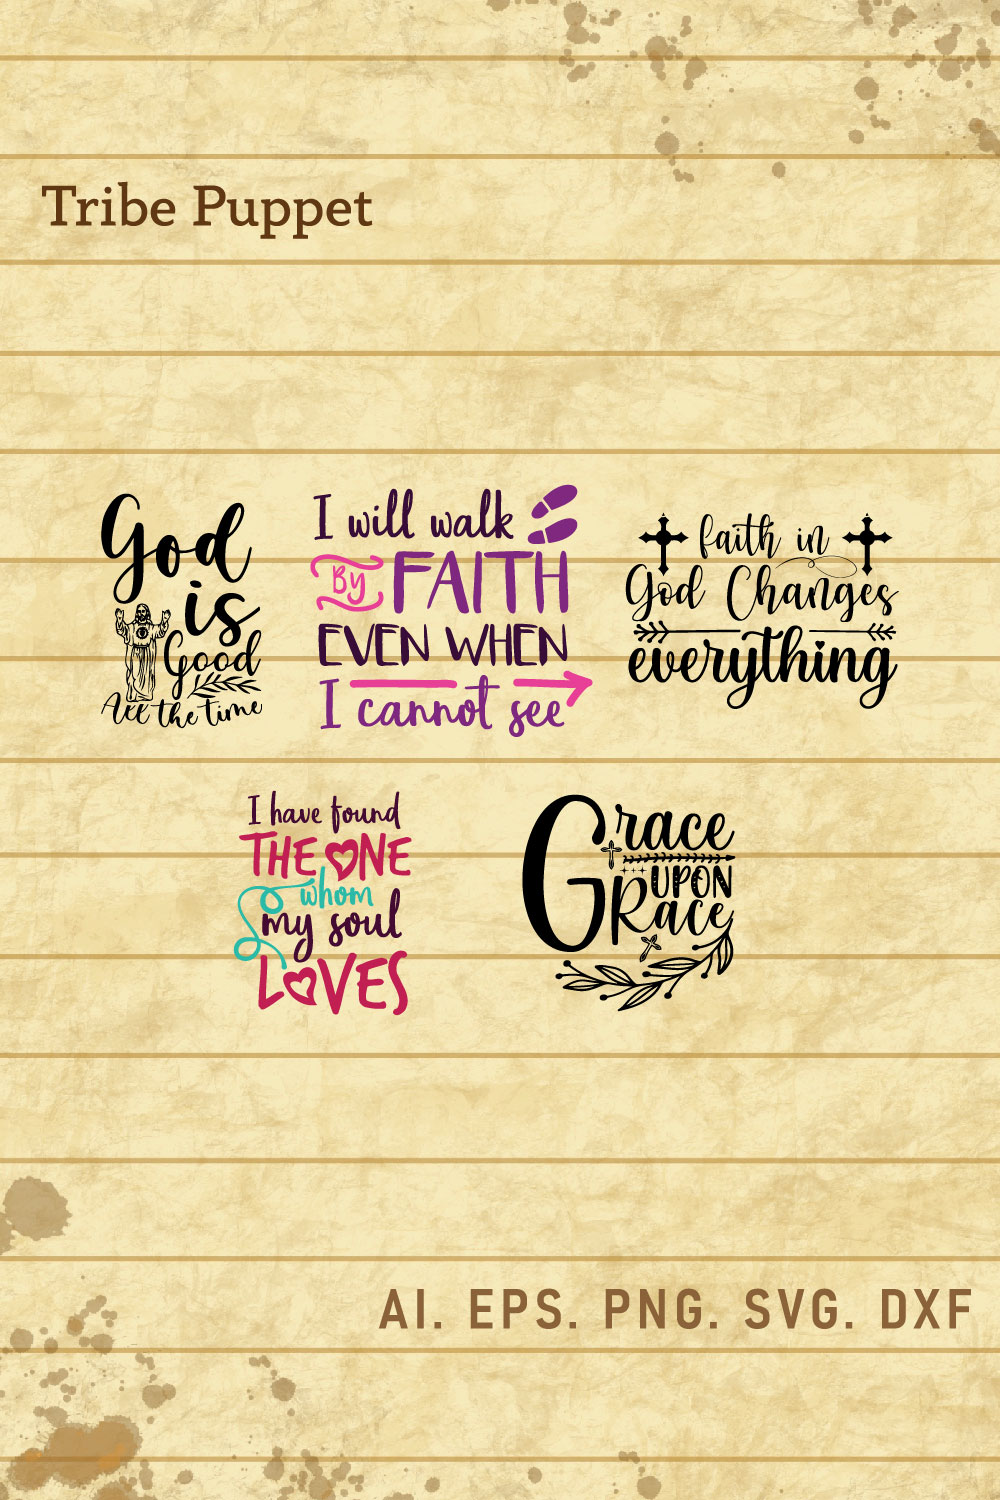 Tribe Puppet
God
is
Good
All the time
I will walk
By FAITH
EVEN WHEN
I cannot see
faith in
God Changes
everything
I have found
THE ONE
whom
my soul
LOVES
Grace
UPON
Grace
AI. EPS. PNG. SVG. DXF